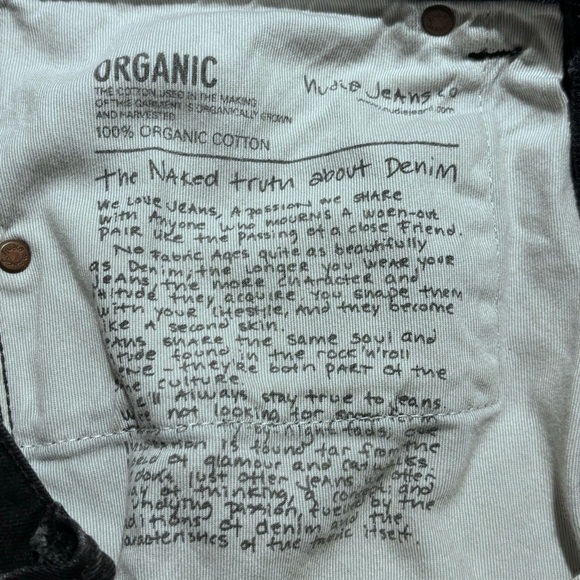 ORGANIC
THE COTTON USED IN THE MAKING
OF THIS GARMENT IS ORGANICALLY GROWN
AND HARVESTED
100% ORGANIC COTTON
Nudie Jeans co
www.nudiejeans.com
the NAKED truth about Denim
WE LOVE JEANS, A PASSION WE SHARE
WITH ANYONE WHO MOURNS A WORN-OUT
PAIR LIKE the PASSING of a close Friend.
NO FABRIC AGES quite as beautifully
as Denim, the LONGER you WEAR YOUR
JEANS, the MORE CHARACTER and
titude they ACQUIRE. YOU SHAPE THEM
WITH YOUR Lifestyle, AND they BECOME
ike A second skin.
ANS SHARE the SAME SOUL and
tude found in the ROCK'n'roll
- they're both PART of the
me culture
'll Always stay true to jeans
not looking for
night fads,
is found far from the
of glamour and catwalks.
don't just offer jeans,
ay of thinking, a concept and
undying passion, fueled by the
ditions of denim and the
aracteristics of the fabric itself.